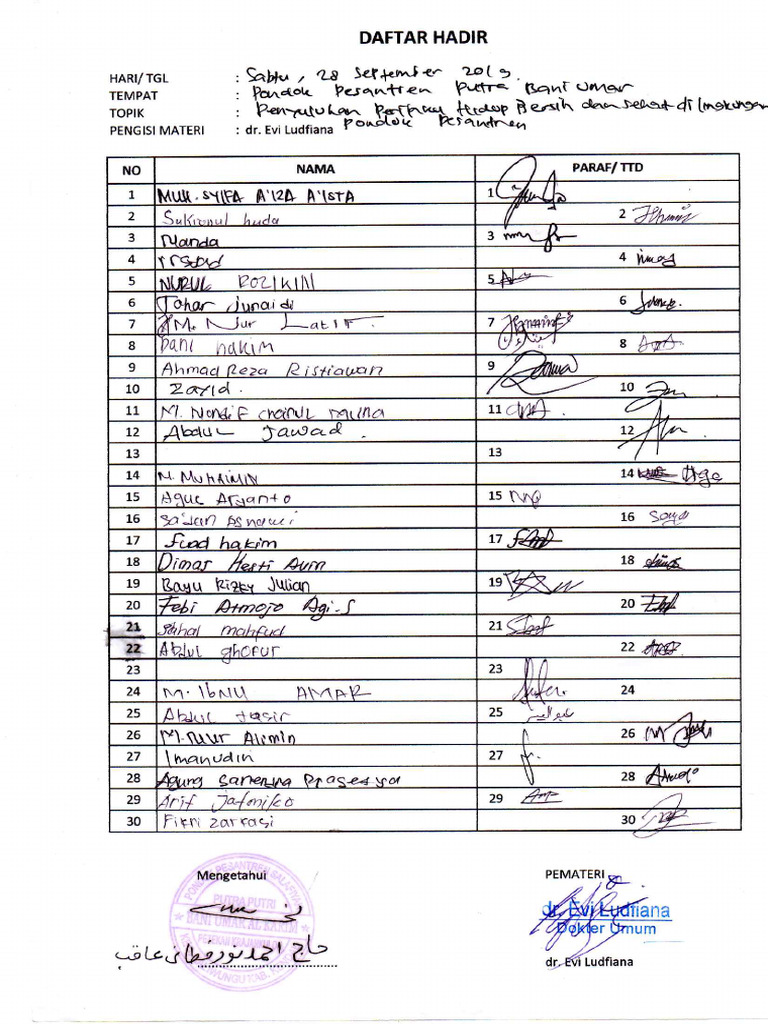 DAFTAR HADIR
HARI/ TGL : Sabtu, 28 September 2019
TEMPAT : Pondok Pesantren Putra Bani Umar
TOPIK : Penyuluhan Perilaku Hidup Bersih dan Sehat di lingkungan
Pondok Pesantren
PENGISI MATERI : dr. Evi Ludfiana
NO NAMA PARAF/ TTD
1 MUH. SYIFA A'IZA A'ISTA 1
2 Sukronul huda 2
3 Nanda 3
4 Irsyad 4
5 NURUL ROZIKIN 5
6 Johar Junaidi 6
7 M. Nur Latif. 7
8 Dani hakim 8
9 Ahmad Reza Ristiawan 9
10 Zayid. 10
11 M. Nandif choirul muna 11
12 Abdul Jawad 12
13 13
14 M. MUHAIMIN 14
15 Ague Aryanto 15
16 16
17 fuad hakim 17
18 Dimas Hesti Aum 18
19 Bayu Rizky Julian 19
20 Febi Atmojo Agi.S 20
21 Sahal mahfud 21
22 Abdul ghofur 22
23 23
24 M. IBNU AMAR 24
25 Abdul 25
26 M. Nur Alimin 26
27 Imanudin 27
28 Agung 28
29 Arif Jatmiko 29
30 Fikri zarkasi 30
Mengetahui PEMATERI
PONDOK PESANTREN SALAFIYAH
PUTRA PUTRI
BANI UMAR AL KARIM
dr. Evi Ludfiana
Dokter Umum
حاج احمد نور
dr. Evi Ludfiana